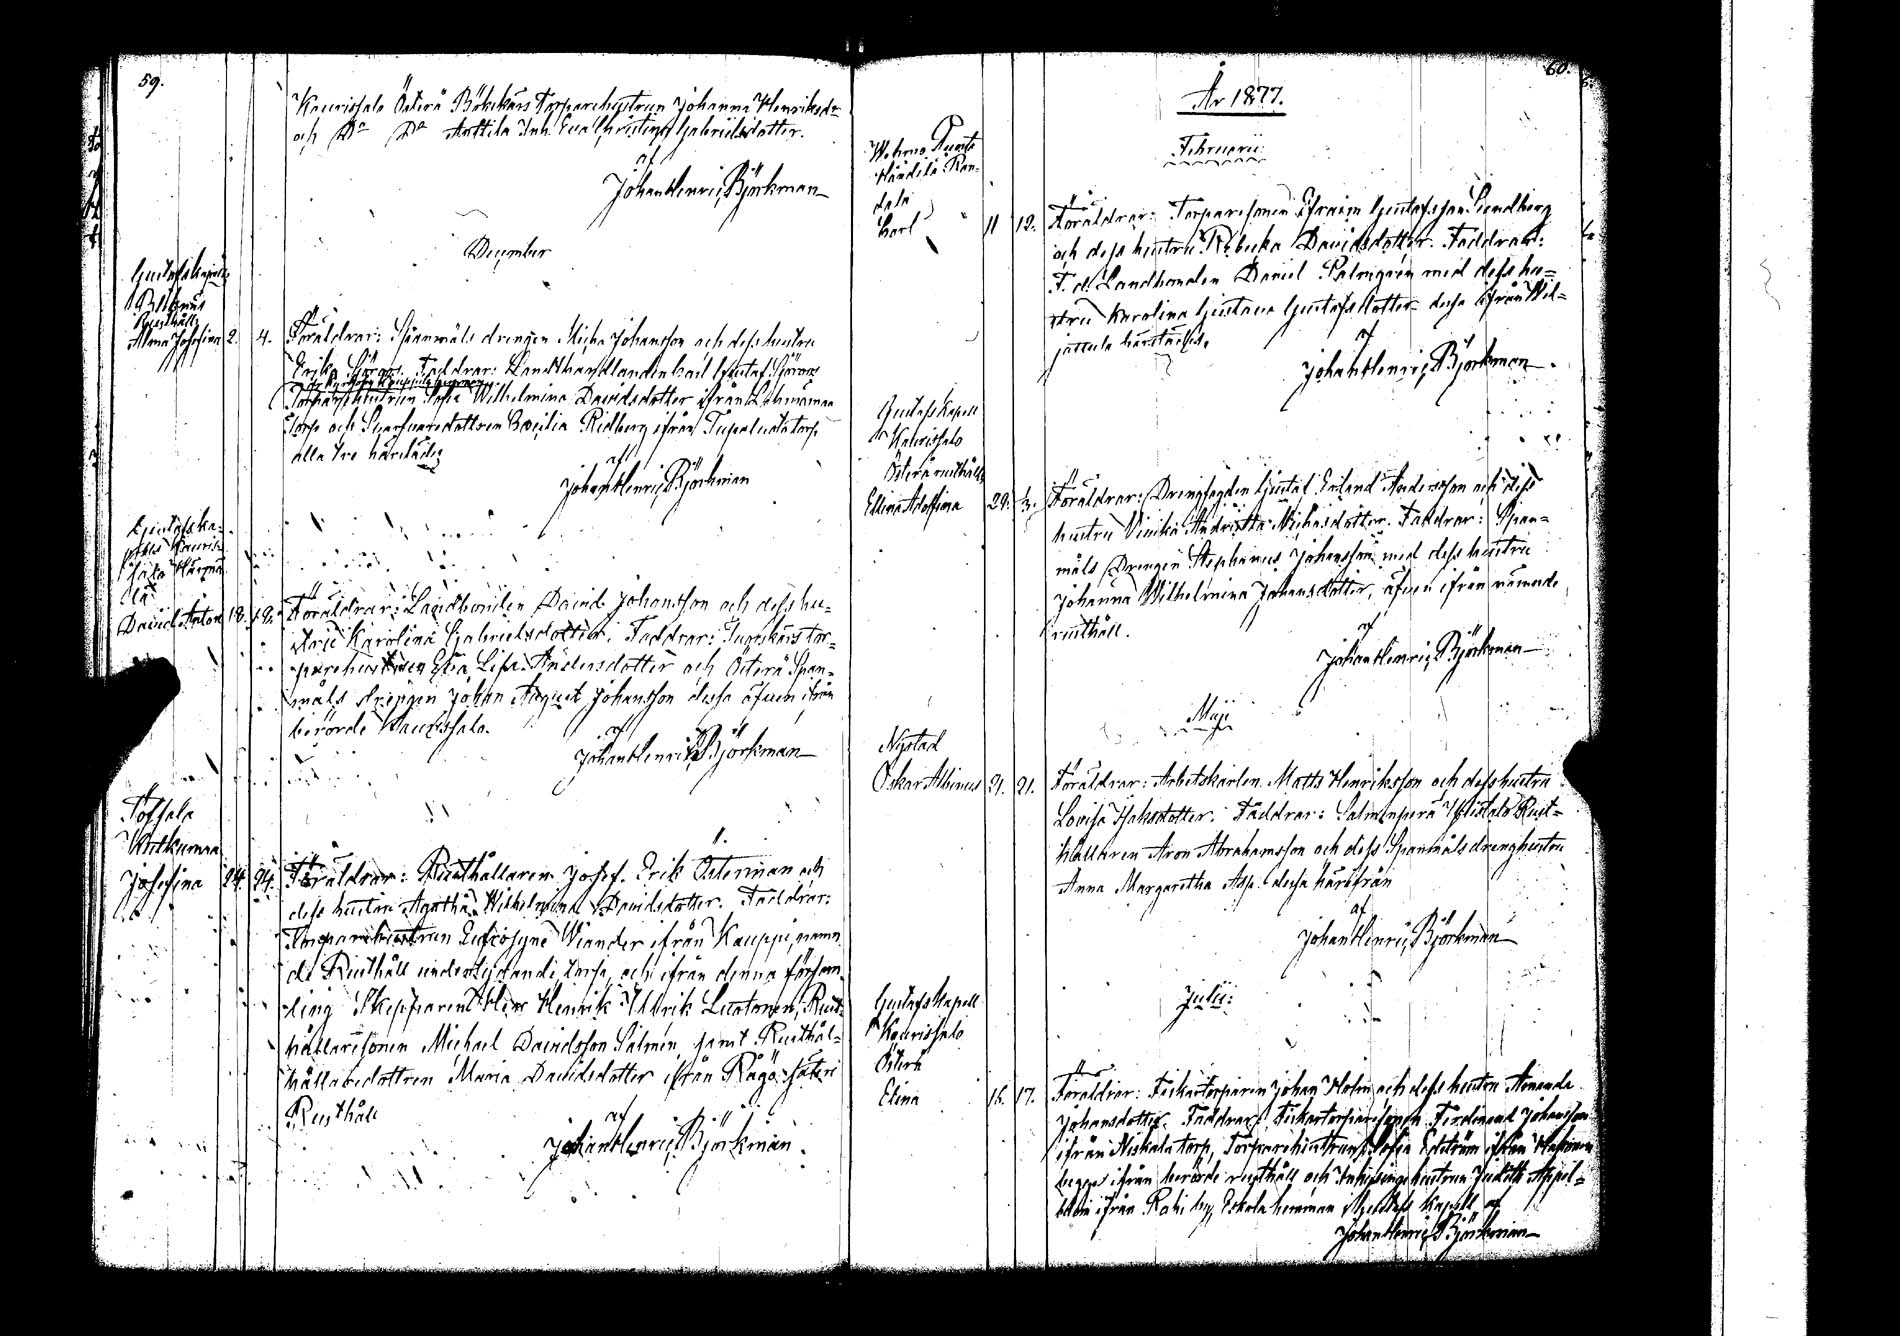 59.
Kaurissalo Österå Bökskärs Torparehustrun Johanna Henriksdr
och Do Do Anttila Inh. Eva Christina Gabrielsdotter.
af
Johan Henric Björkman
December
Gustafs Kapell
Rusthåll
Alma Josefina 2. 4. Föräldrar: Spanmåls drengen Micha Johansson och dess hustru
Erika Sjöros. Faddrar: Landthandlanden Carl Gustaf Sjöroos
Torparehustrun Sofia Wilhelmina Davidsdotter ifrån
torp och Cecilia Ridberg ifrån torp
alla tre härstädes
af
Johan Henric Björkman
Gustafs Ka-
pells Kauris-
salo
David Anton 18. 19. Föräldrar: Landbonden David Johansson och dess hu-
stru Karolina Gabrielsdotter. Faddrar: tor-
parehustrun Eva Lisa Andersdotter och Österå Span-
måls drengen Johan August Johansson dessa äfven ifrån
berörde Kaurissalo.
af
Johan Henric Björkman
Töfsala
Josefina 24. 24. Föräldrar: Rusthållaren Josef Erik Österman och
dess hustru Agatha Wilhelmina Davidsdotter. Faddrar:
Torparehustrun Eufrosyne Wiander ifrån Kauppi, namn
de Rusthåll underlydande torp, och ifrån denna försam-
ling Skepparen Herr Henrik Ulrik Luotonen, Rust-
hållaresonen Michael Davidsson Salmén samt Rusthål-
hållaredottren Maria Davidsdotter ifrån Rågö Säteri
Rusthåll
af
Johan Henric Björkman
60.
År 1877.
Februarii
Wehmo
Carl 11 12. Föräldrar: Torparesonen Efraim Gustafsson Sundberg
och dess hustru Rebecka Davidsdotter. Faddrar:
F. d. Landbonden Daniel Palmgren med dess hu-
stru Karolina Gustava Gustafsdotter dessa ifrån Wil-
jattula härstädes.
af
Johan Henric Björkman
Gustafs Kapell
Kaurissalo
Österå rusthåll
Ellina Adolfina 29. 3. Föräldrar: Drengfogden Gustaf Erland Andersson och dess
hustru Ulrika Michelsdotter. Faddrar: Span-
måls Drengen Stephanus Johansson med dess hustru
Johanna Wilhelmina Johansdotter, äfven ifrån nämnde
rusthåll.
af
Johan Henric Björkman
Maji
Nystad
Oskar Albinus 21. 21. Föräldrar: Arbetskarlen Matts Henriksson och dess hustru
Lovisa Isaksdotter. Faddrar: Salmenperä Ylistalo Rust-
hållaren Aron Abrahamsson och dess Spanmåls drenghustru
Anna Margaretha Asp. dessa härifrån
af
Johan Henric Björkman
Julii
Gustafs Kapell
Kaurissalo
Österå
Elina 15. 17. Föräldrar: Fiskartorparen Johan Holm och dess hustru Amanda
Johansdotter. Faddrar: Fiskartorparesonen Ferdinand Johansson
ifrån Niskala torp, Torparehustrun Sofia Edström ifrån
begge ifrån berörde rusthåll och Inhysingehustrun Judith Appel-
blom ifrån Rahi by, Eskola hemman i Kapell af
Johan Henric Björkman